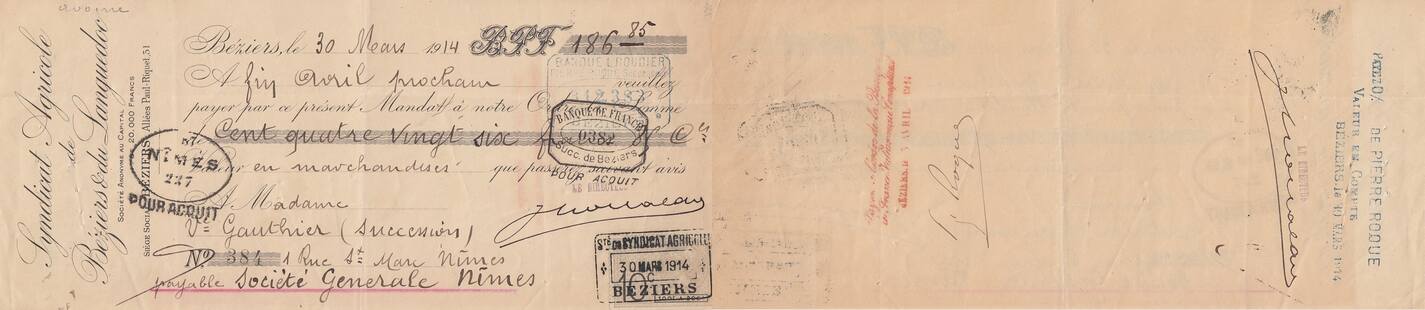 avoine
Syndicat Agricole
de
Béziers & du Languedoc
Société Anonyme au Capital 20.000 Francs
Siège Social BÉZIERS Allées Paul-Riquet, 51
Béziers, le 30 Mars 1914 B.P.F. 186 85
A fin Avril prochain veuillez
payer par ce présent Mandat à notre
Cent quatre vingt six
en marchandises que suivant avis
A Madame
Vve Gauthier (Succession)
No 384 1 Rue St Marc Nîmes
payable Société Generale Nîmes
NIMES
227
POUR ACQUIT
BANQUE L. ROUDIER
BANQUE DE FRANCE
0382
Succ. de Béziers
POUR ACQUIT
LE DIRECTEUR
Sté DU SYNDICAT AGRICOLE
30 MARS 1914
10c
BÉZIERS
AVRIL 1914
P. Roque
PAYEZ O/ DE PIERRE ROQUE
VALEUR EN COMPTE
BÉZIERS, le 30 MARS 1914
LE DIRECTEUR